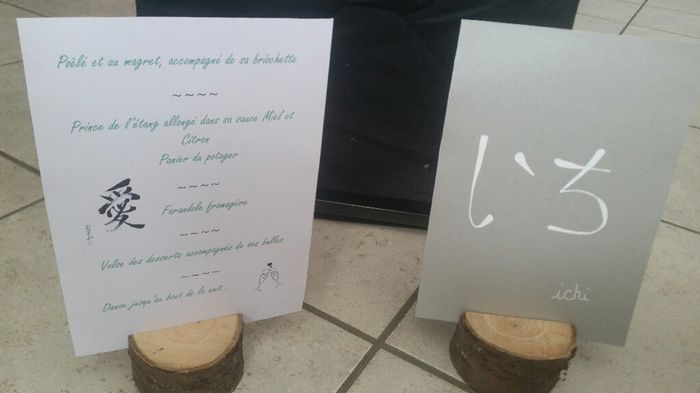 Poêlé et au magret, accompagné de sa brischette
~~~~
Prince de l'étang allongé dans sa sauce Miel et
Citron
Panier du potager
~~~~
愛
Farandole fromagère
~~~~
Valse des desserts accompagnés de ses bulles
~~~~
Danse jusqu'au bout de la nuit...
いち
ichi